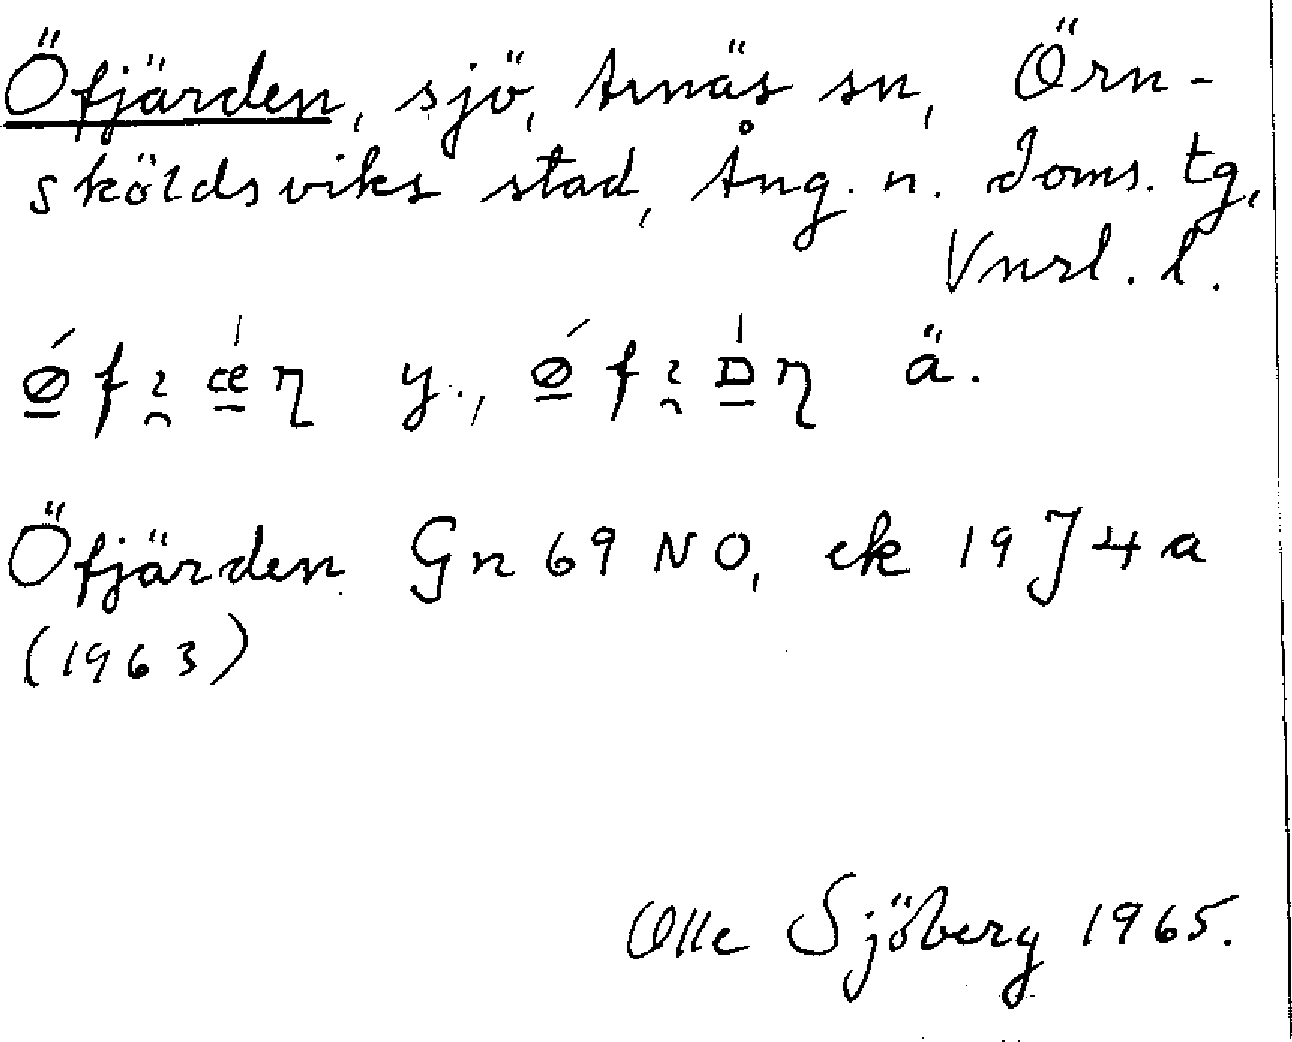 Öfjärden, sjö, Arnäs sn, Örn-
sköldsviks stad, Ång. n. doms. tg,
Vnrl. l.
y., ä.
Öfjärden Gn 69 NO, ek 19 J 4 a
(1963)
Olle Sjöberg 1965.